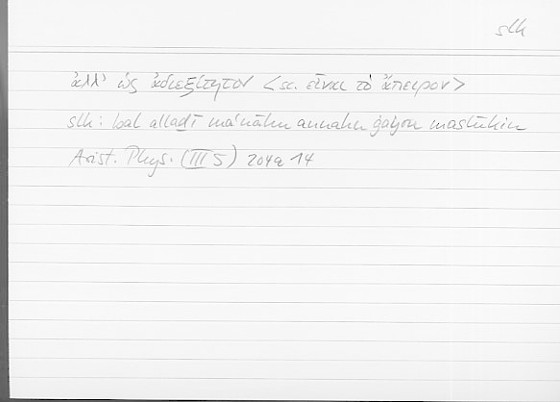 slk
ἀλλ' ὡς ἀδιεξίτητον <sc. εἶναι τὸ ἄπειρον>
slk: bal allaḏī maʿnāhu annahu ġayru maslūkin
Arist. Phys. (III 5) 204a 14